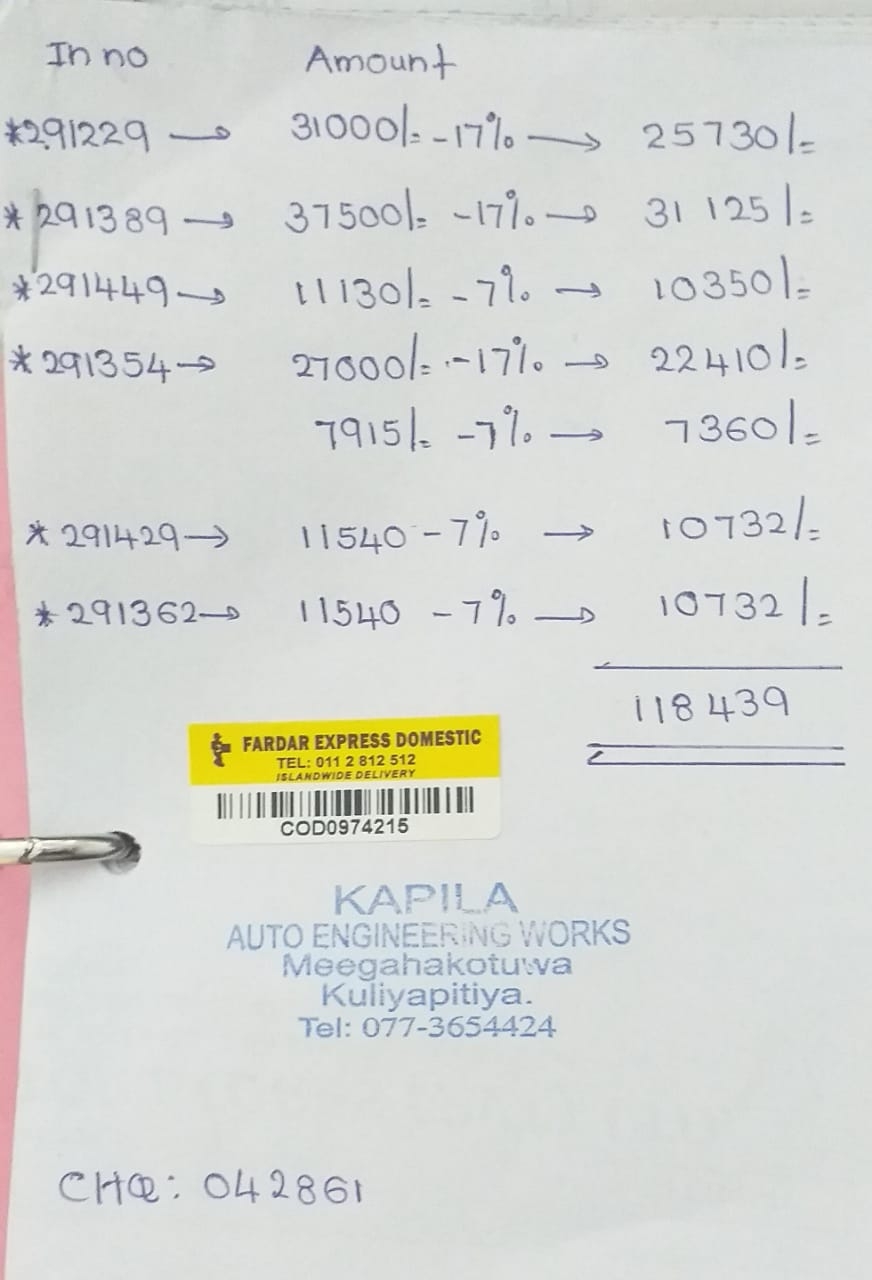 In no Amount
*291229 → 31000/= -17% → 25730/=
*291389 → 37500/= -17% → 31125/=
*291449 → 11130/= -7% → 10350/=
*291354 → 27000/= -17% → 22410/=
7915/= -7% → 7360/=
*291429 → 11540 -7% → 10732/=
*291362 → 11540 -7% → 10732/=
118439
FARDAR EXPRESS DOMESTIC
TEL: 011 2 812 512
ISLANDWIDE DELIVERY
COD0974215
KAPILA
AUTO ENGINEERING WORKS
Meegahakotuwa
Kuliyapitiya.
Tel: 077-3654424
CHQ: 042861